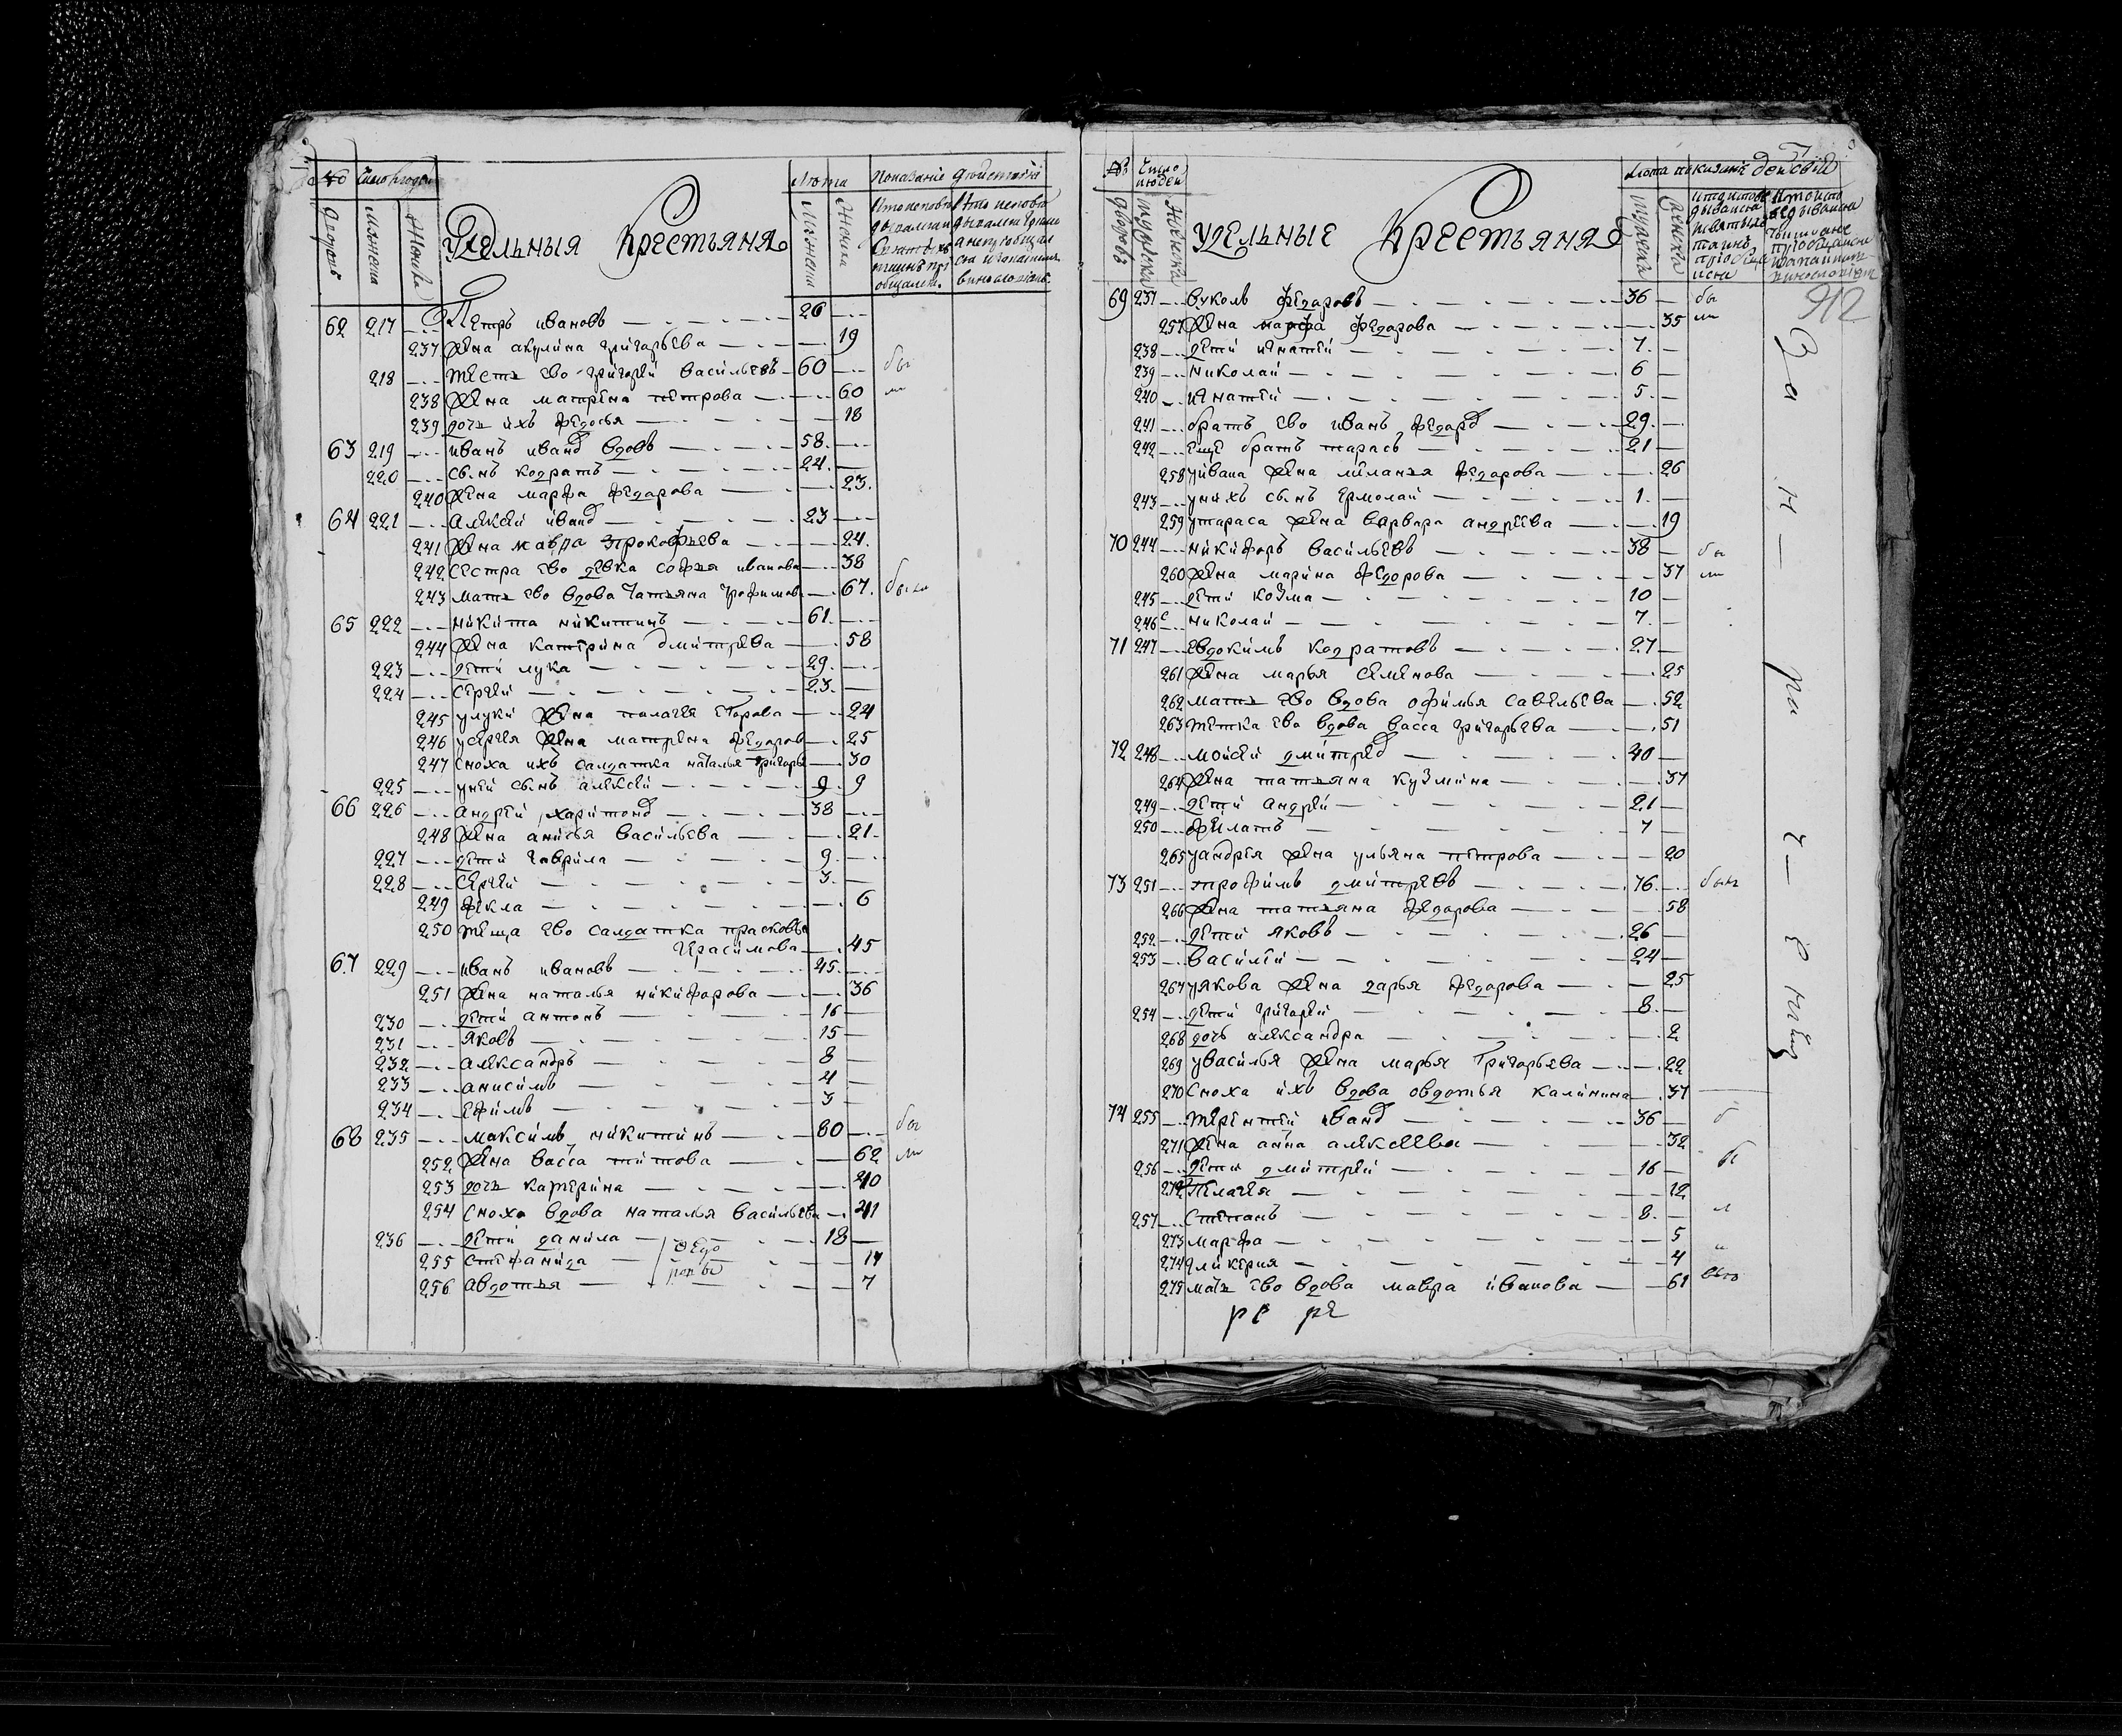 № Число людей Лѣта Показаніе дѣйствія
Дворовъ Мужеска Женска Удельныя Крестьяня Мужеска Женска
62 217 Петръ ивановъ 26
237 Жена акулина григарьева 19
218 тесть ево григорей васильевъ 60 бы
238 Жена матрена петрова 60 ли
239 дочь ихъ федосья 18
63 219 иванъ иванд вдовъ 58
220 сынъ кодратъ 24
240 Жена марфа федарова 23
64 221 алексей иванд 23
241 Жена мавра прокофьева 24
242 сестра ево девка софья иванова 38
243 мать ево вдова татьяна трофимова 67 были
65 222 никита никитинъ 61
244 Жена катерина дмитрева 58
223 дети лука 29
224 сергей 23
245 у луки Жена пилагея егорова 24
246 у сергея Жена матрена федоров 25
247 сноха ихъ салдатка наталья григорь 30
225 у ней сынъ алексей 9 9
66 226 андрей харитонд 38
248 Жена анисья васильева 21
227 дети гаврила 9
228 сергей 3
249 фекла 6
250 теща ево салдатка прасковья
герасимова 45
67 229 иванъ ивановъ 45
251 Жена наталья никифарова 36
230 дети антонъ 16
231 яковъ 15
232 александръ 8
233 анисимъ 4
234 ефимъ 3
68 235 максимъ никитинъ 80 бы
252 Жена васса титова 62 ли
253 дочь катерина 40
254 сноха вдова наталья васильева 41
236 дети данила 18
255 стефанида 14
256 авдотья 7
Число людей Лѣта показаніе действій
Дворовъ Мужеска Женска Удельные Крестьяня Мужеска Женска
912
69 237 вуколъ федаровъ 36 бы
257 Жена марфа федарова 35 ли
238 дети игнатей 7
239 николай 6
240 игнатей 5
241 братъ ево иванъ федард 29
242 еще братъ тарасъ 21
258 у ивана Жена меланья федарова 26
243 у нихъ сынъ ермолай 1
259 у тараса Жена варвара андреева 19
70 244 никифоръ васильевъ 38 бы
260 Жена марина федорова 37 ли
245 дети козма 10
246 николай 7
71 247 евдокимъ кодратовъ 27
261 Жена марья семенова 25
262 мать ево вдова офимья савельева 52
263 тетка ево вдова васса григарьева 51
72 248 мойсей дмитред 40
264 Жена татьяна кузмина 37
249 дети андрей 21
250 филатъ 7
265 у андрея Жена ульяна петрова 20
73 251 трофимъ дмитревъ 76 были
266 Жена татьяна федарова 58
252 дети яковъ 26
253 василей 24
267 у якова Жена дарья федарова 25
254 дети григарей 8
268 дочь александра 2
269 у василья Жена марья григарьева 22
270 сноха ихъ вдова овдотья калинина 37
74 255 терентей иванд 36
271 Жена анна алексеева 32
256 дети дмитрей 16
272 пелагея 12
257 степанъ 8
273 марфа 5
274 гликерия 4
275 мать ево вдова мавра иванова 61